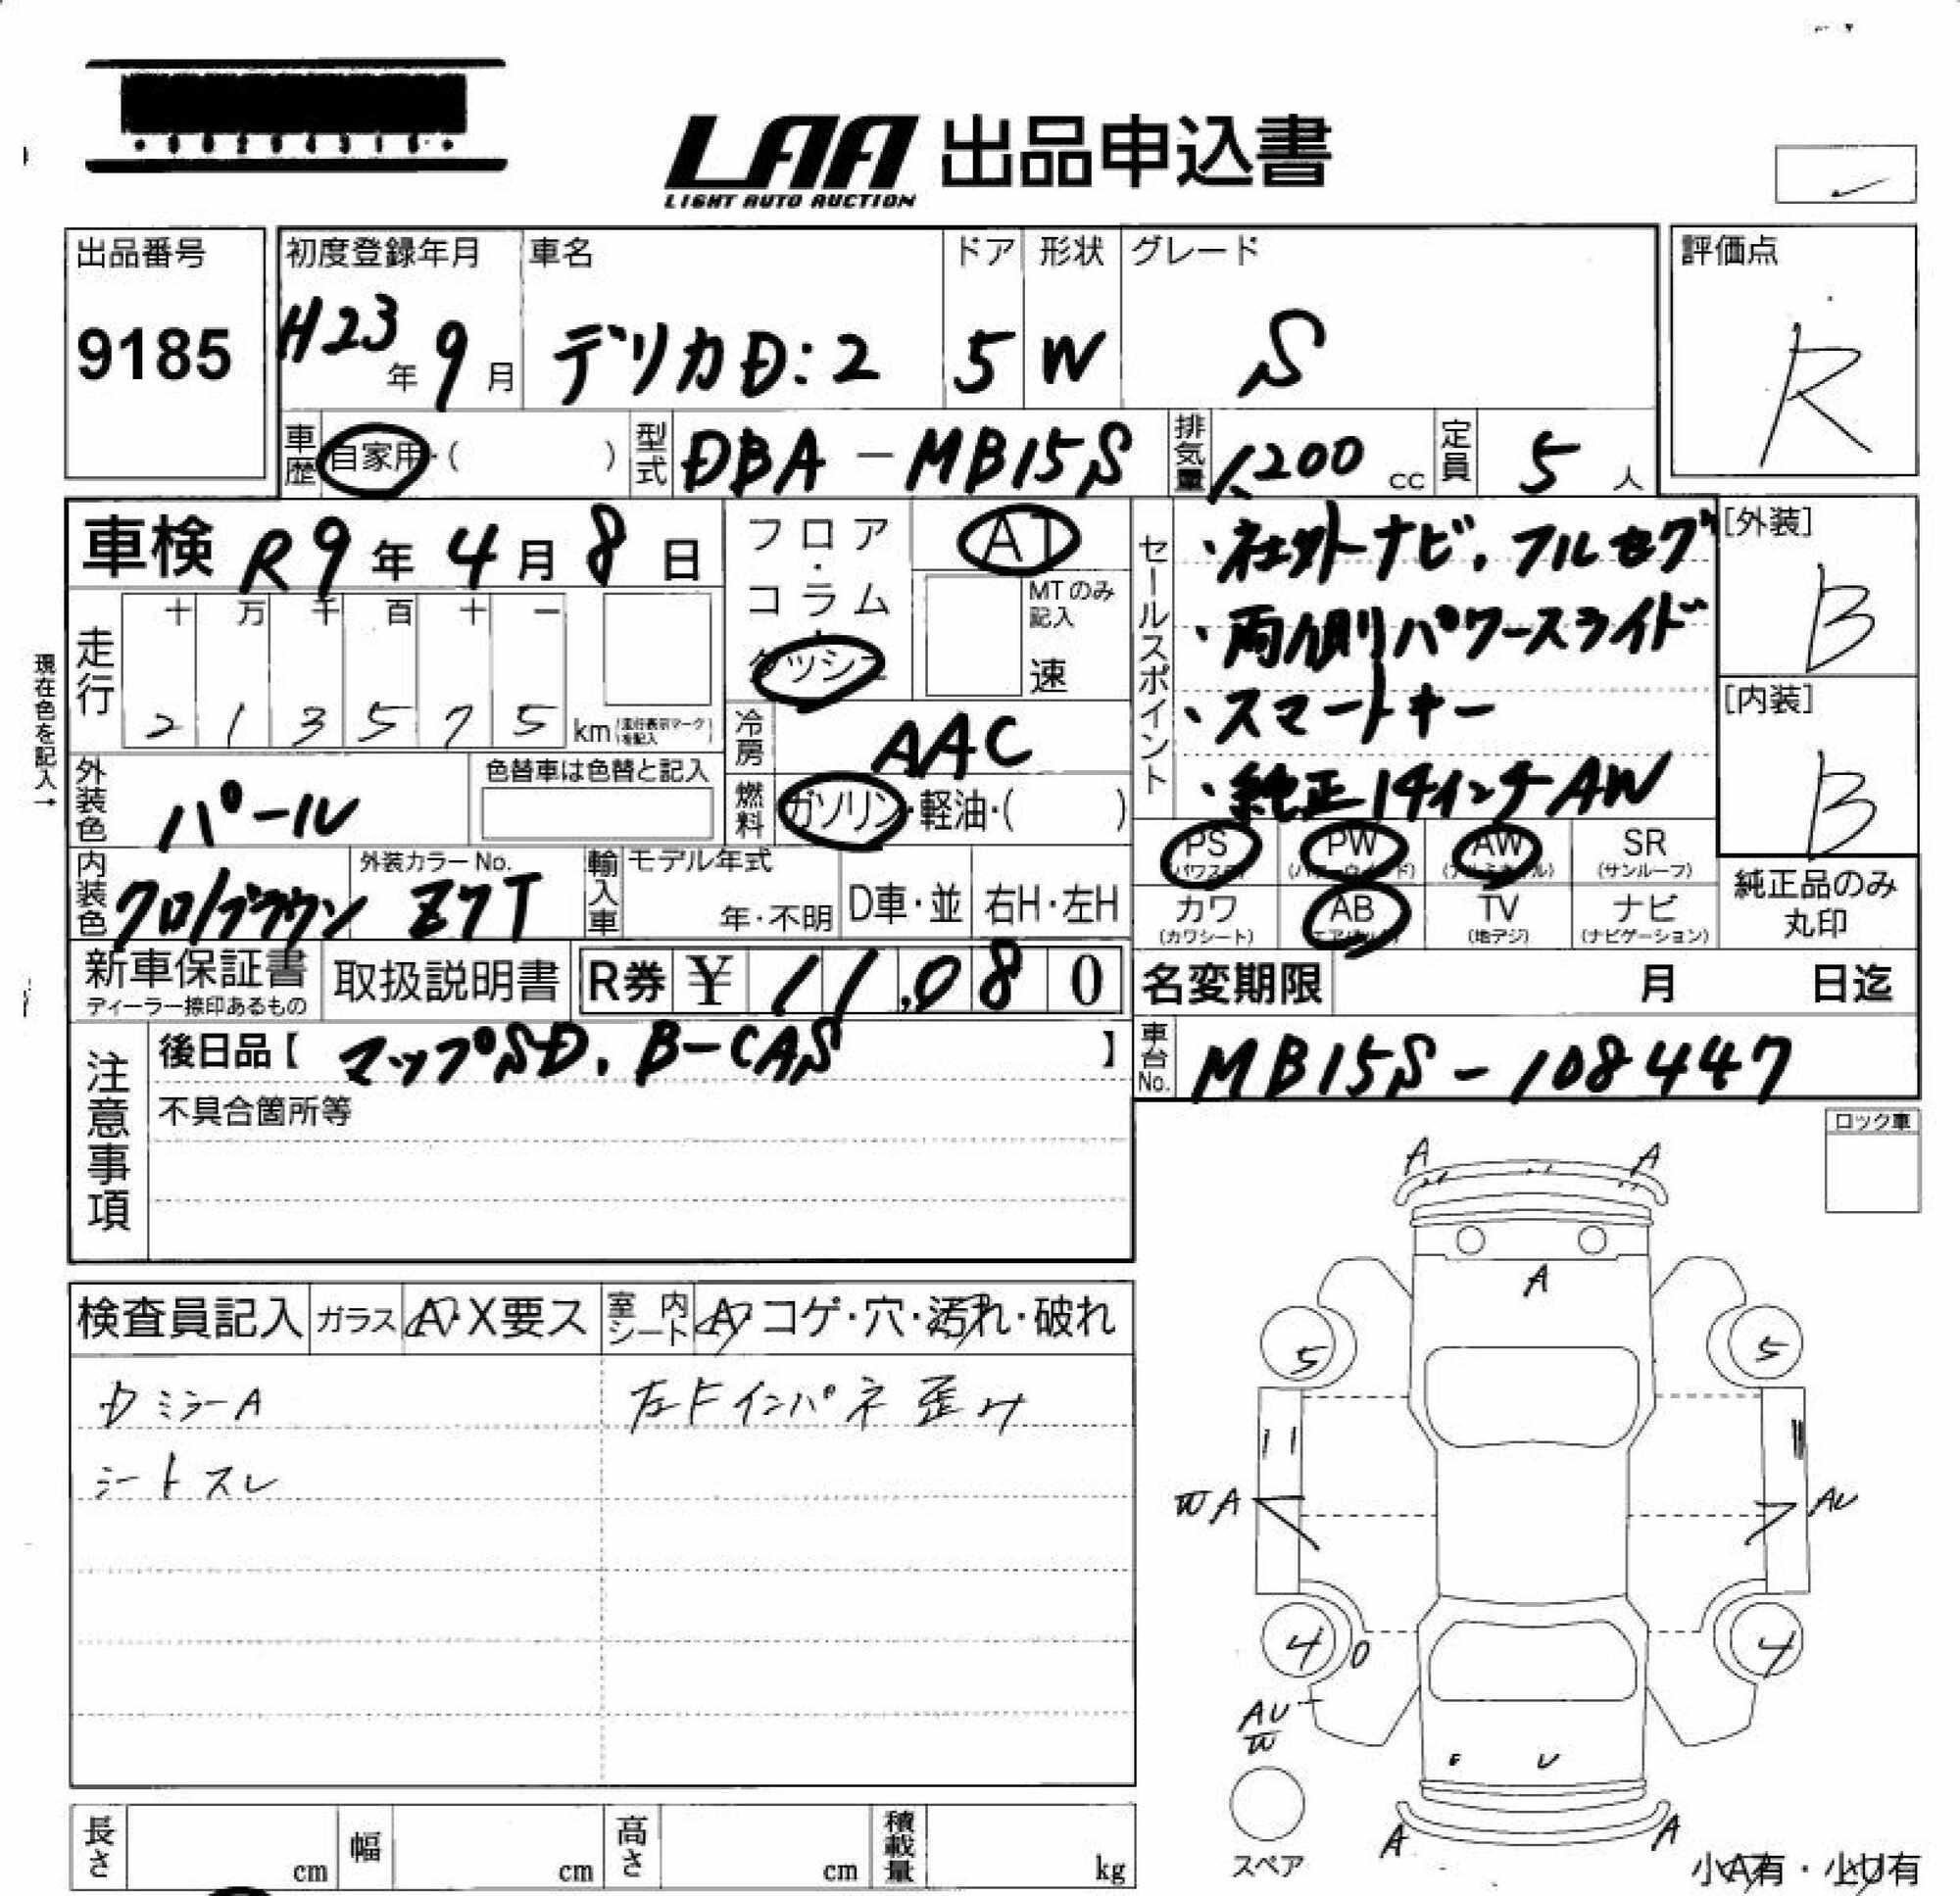 LAA 出品申込書
LIGHT AUTO AUCTION
出品番号 9185
初度登録年月 H23年 9月
車名 デリカD:2
ドア 5
形状 W
グレード S
評価点 R
車歴 自家用・( )
型式 DBA-MB15S
排気量 1,200 cc
定員 5 人
車検 R9年 4月 8日
フロア・コラム・ダッシュ
AT
MTのみ記入 速
セールスポイント
・社外ナビ、フルセグ
・両側パワースライド
・スマートキー
・純正14インチAW
[外装] B
[内装] B
現在色を記入→
走行 十 万 千 百 十 一
2 1 3 5 7 5 km (走行表示マークを記入)
冷房 AAC
外装色 パール
色替車は色替と記入
燃料 ガソリン・軽油・( )
内装色 クロ/ブラウン
外装カラーNo. Z7T
輸入車 モデル年式 年・不明 D車・並 右H・左H
PS PW AW SR
(サンルーフ)
カワ AB TV ナビ
(カワシート) (エアバック) (地デジ) (ナビゲーション)
純正品のみ丸印
新車保証書 取扱説明書 R券 ¥ 11,080
ディーラー捺印あるもの
名変期限 月 日迄
注意事項
後日品【 マップSD、B-CAS 】
不具合箇所等
車台No. MB15S-108447
ロック車
検査員記入 ガラス A・X要ス 室内シート A・コゲ・穴・汚れ・破れ
ミラーA
左Fインパネ歪み
シートスレ
A A
A
5 5
WA AU
4 4
AU
W
U
A A
スペア
小A有・小U有
長さ cm 幅 cm 高さ cm 積載量 kg